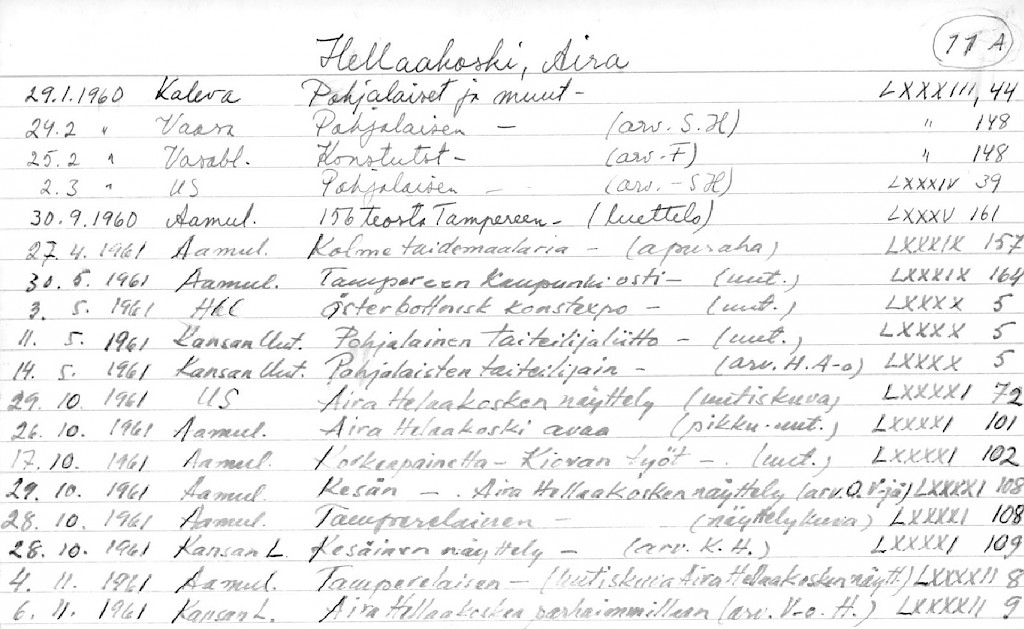 11 A
Hellaakoski, Aira
29.1.1960 Kaleva Pohjalaiset ja muut - LXXXIII, 44
24.2 " Vaasa Pohjalaisen - (arv. S.H) " 148
25.2 " Vasabl. Konstutst - (arv. F) " 148
2.3 " US Pohjalaisen - (arv. - SH) LXXXIV 39
30.9.1960 Aamul. 156 teosta Tampereen - (luettelo) LXXXV 161
27.4.1961 Aamul. Kolme taidemaalaria - (apuraha) LXXXIX 157
30.5.1961 Aamul. Tampereen Kaupunki osti - (uut.) LXXXIX 164
3. 5. 1961 Hbl Österbottnisk konstexpo - (uut.) LXXXX 5
11. 5. 1961 Kansan Uut. Pohjalainen taiteilijaliitto - (uut.) LXXXX 5
14. 5. 1961 Kansan Uut. Pohjalaisten taiteilijain - (arv. H. A-o) LXXXX 5
29. 10. 1961 US Aira Helaakosken näyttely (uutiskuva) LXXXXI 72
26. 10. 1961 Aamul. Aira Helaakoski avaa (pikku-uut.) LXXXXI 101
17. 10. 1961 Aamul. Korkeapainetta - Kiovan työt - (uut.) LXXXXI 102
29. 10. 1961 Aamul. Kesän - . Aira Hellaakosken näyttely (arv. O. V-jä) LXXXXI 108
28. 10. 1961 Aamul. Tamperelainen - (näyttelykuva) LXXXXI 108
28. 10. 1961 Kansan L. Kesäinen näyttely - (arv. K. H.) LXXXXI 109
4. 11. 1961 Aamul. Tamperelaisen - (uutiskuva Aira Hellaakosken näytt.) LXXXXII 8
6. 11. 1961 Kansan L. Aira Hellaakoski parhaimmillaan (arv. V-o. H.) LXXXXII 9